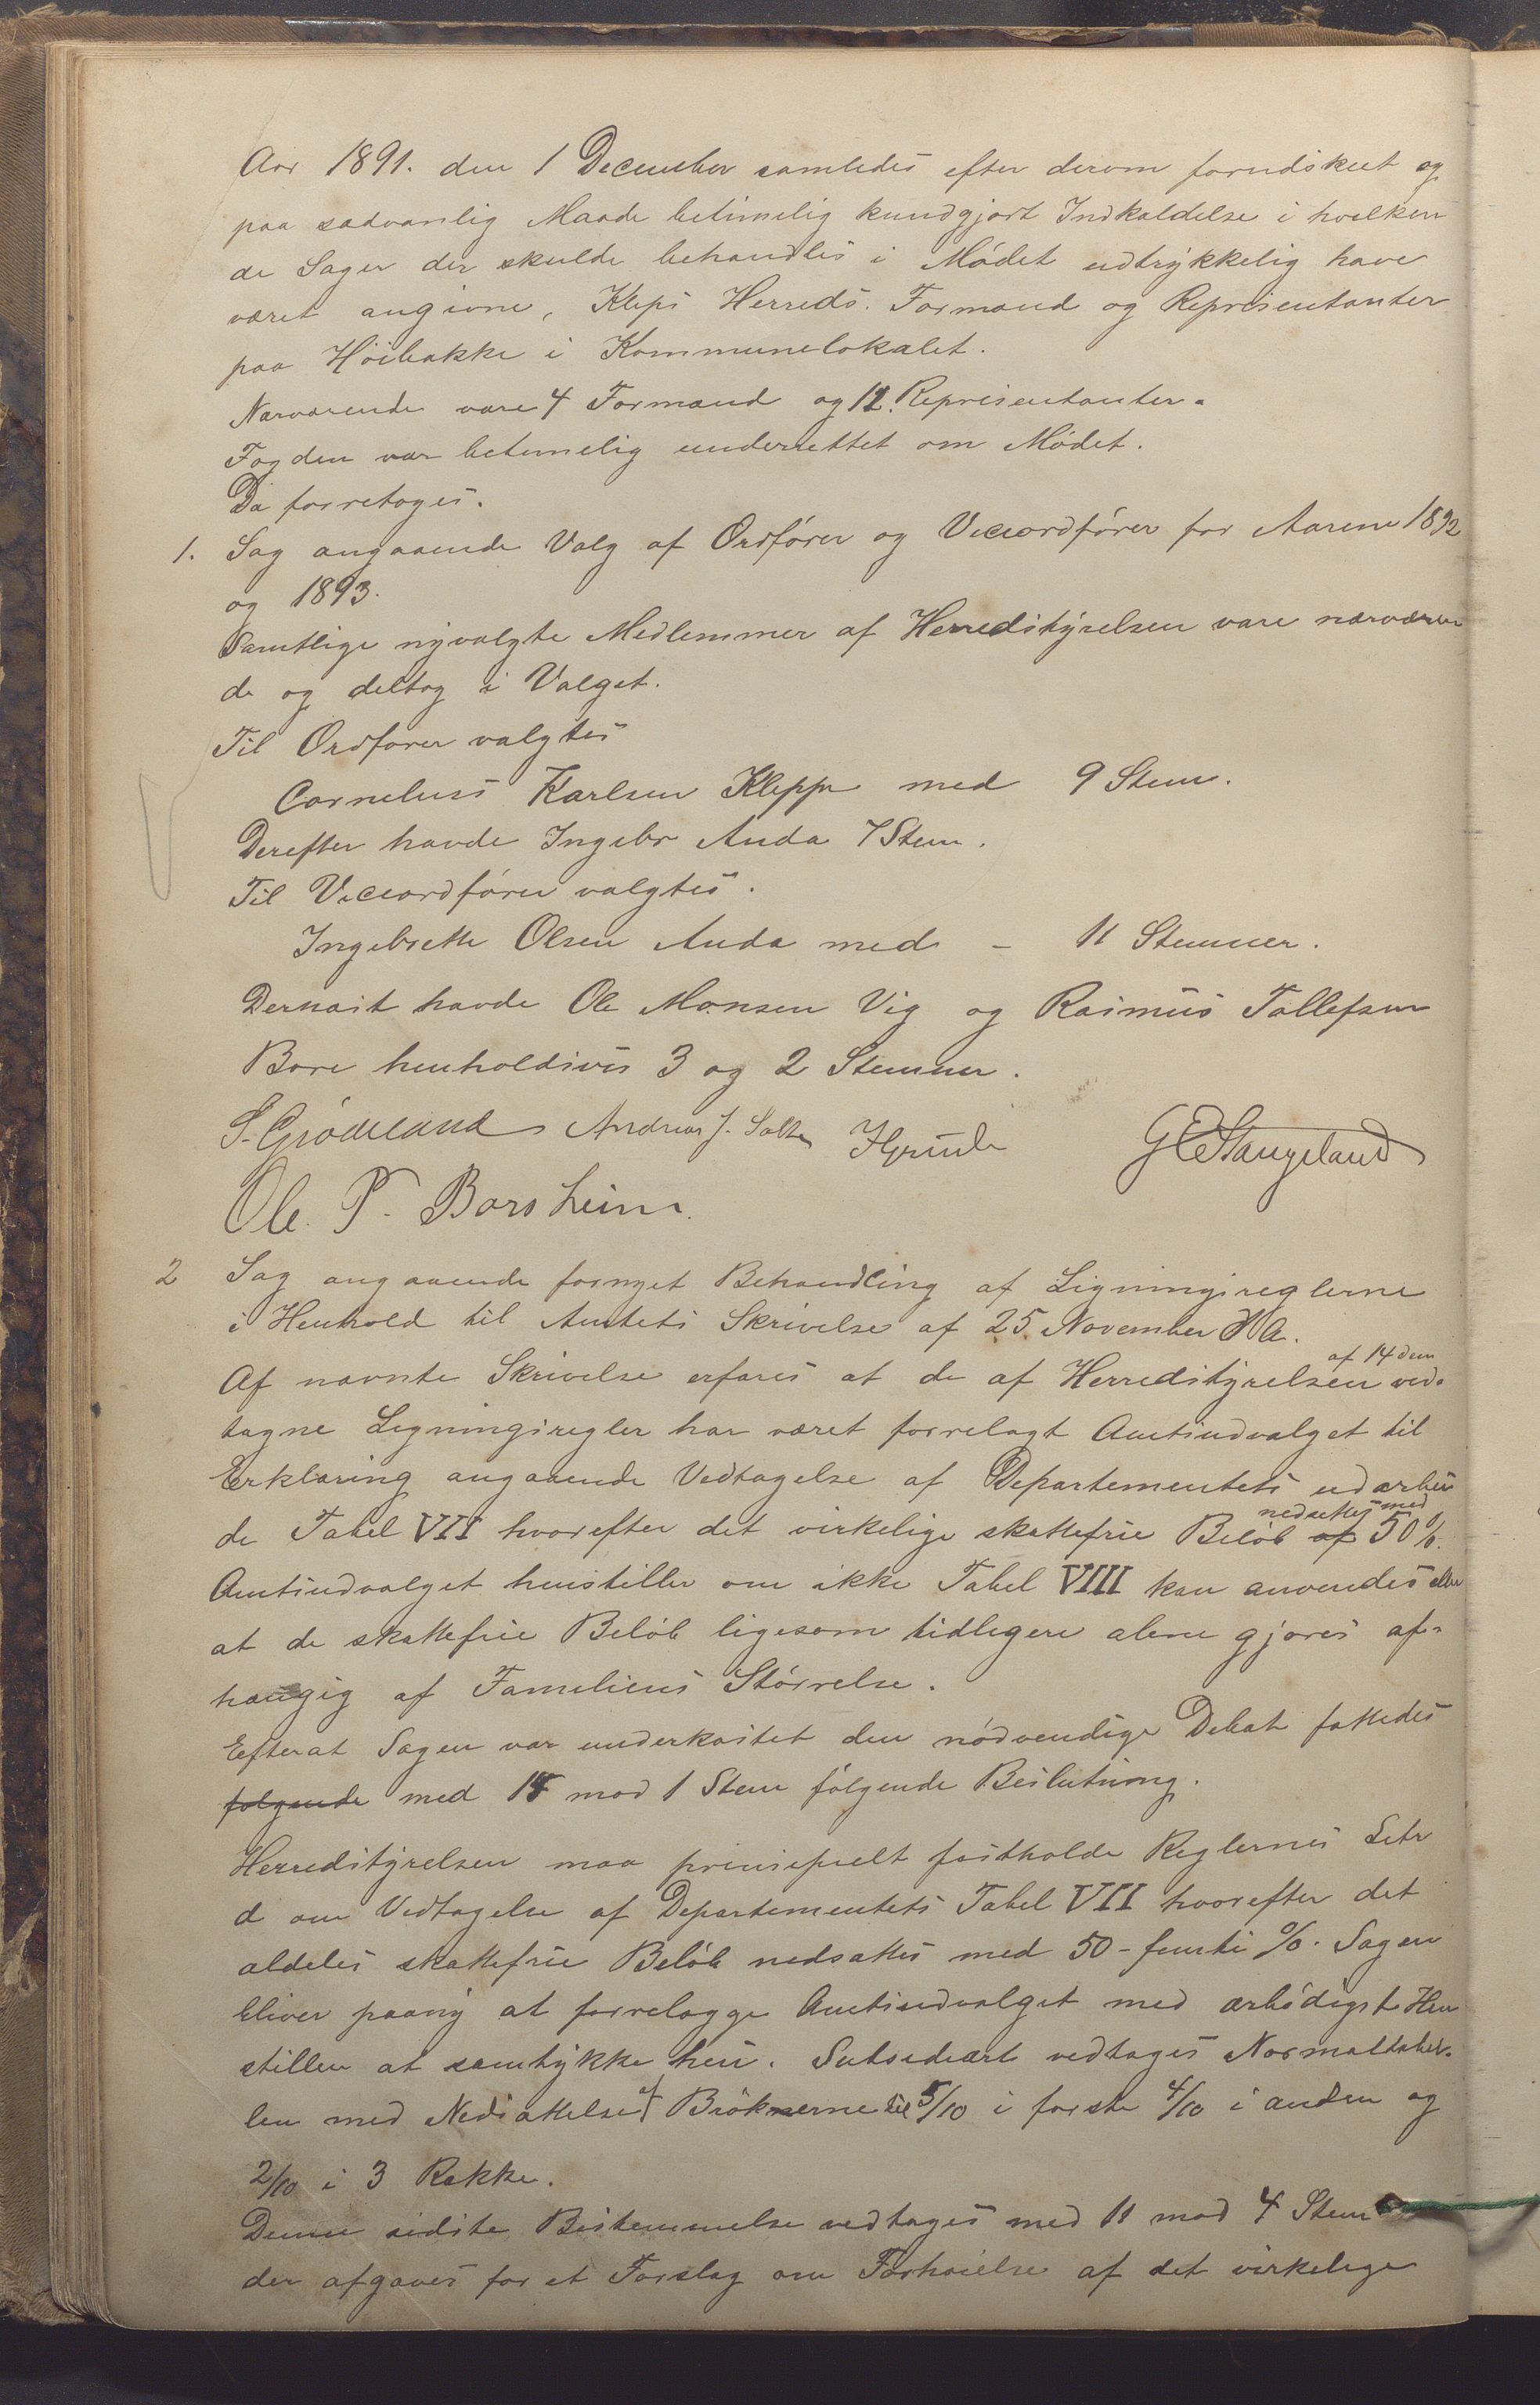 Aar 1891. den 1 December samledes efter derom forudskeet og
paa sædvanlig Maade betimelig kundgjort Indkaldelse i hvilken
de Sager der skulde behandles i Mødet udtrykkelig have
været angivne, Kleps Herreds. Formænd og Repræsentanter
paa Höibakke i Kommunelokalet.
Nærværende vare 4 Formænd og 12. Repræsentanter.
Fogden var betimelig underrettet om Mødet.
Da forretoges.
1. Sag angaaende Valg af Ordfører og Viceordfører for Aarene 1892
og 1893.
Samtlige nyvalgte Medlemmer af Herredstyrelsen vare nærværen
de og deltog i Valget.
Til Ordfører valgtes
Cornelius Karlsen Kleppe med 9 Stem.
Derefter havde Ingebr Anda 7 Stem.
Til Viceordfører valgtes.
Ingebrette Olsen Anda med – 11 Stemmer.
Dernæst havde Ole Monsen Vig og Rasmus Tollefsen
Bore henholdsvis 3 og 2 Stemmer.
S. Grödeland Andreas J. Salte G E Stangeland
Ole. P. Borsheim.
2 Sag angaaende fornyet Behandling af Ligningsreglerne
i Henhold til Amtets Skrivelse af 25 November d A.
af 14 dem
Af nævnte Skrivelse erfares at de af Herredstyrelsen ved-
tagne Ligningsregler har været forrelagt Amtsudvalget til
Erklæring angaaende Vedtagelse af Departementets udarbei
nedsættes med
de Tabel VII hvorefter det virkelige skattefrie Beløb af 50%.
Amtsudvalget henstiller om ikke Tabel VIII kan anvendes eller
at de skattefrie Beløb ligesom tidligere alene gjøres af-
hængig af Familiens Størrelse.
Efterat Sagen var underkastet den nødvendige Debat fattedes
følgende med 15 mod 1 Stem følgende Beslutning.
Herredstyrelsen maa principielt fastholde Reglernes Litr
d om Vedtagelse af Departementets Tabel VII hvorefter det
aldeles skattefrie Beløb nedsættes med 50 - femti %. Sagen
bliver paany at forrelægge Amtsudvalget med ærbødigst Hen
stillen at samtykke heri. Subsediært vedtages Normaltabel-
len med Nedsættelse af Brøkerne til 5/10 i første 4/10 i anden og
2/10 i 3 Række.
Denne sidste Bestemmelse vedtages med 11 mod 4 Stem
der afgaves for et Forslag om Forhøielse af det virkelige